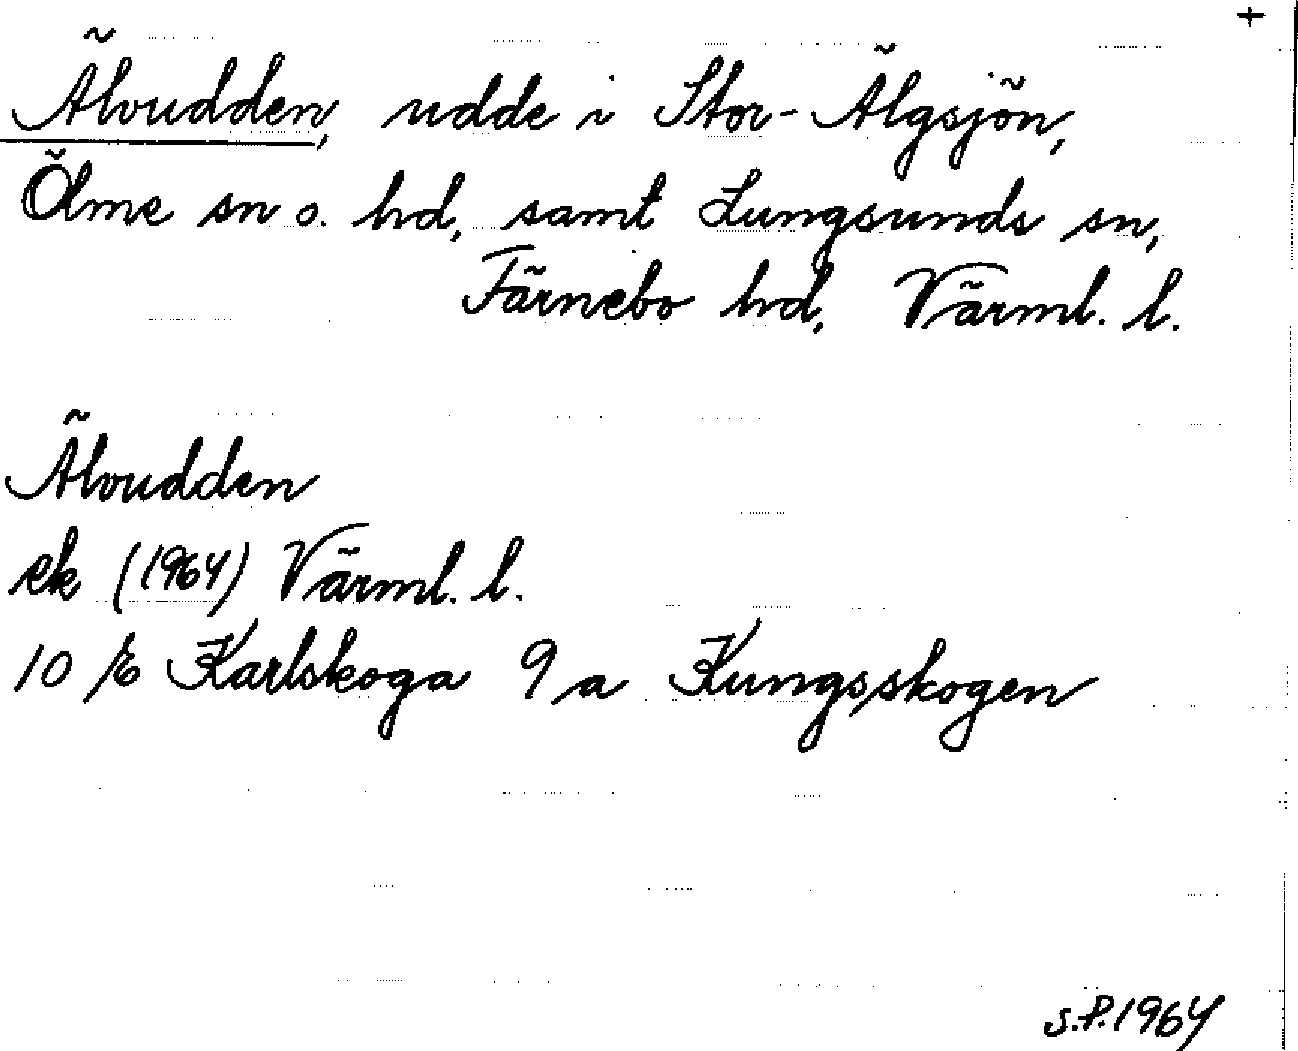 +
Älvudden, udde i Stor-Älgsjön,
Ölme sn o. hd, samt Lungsunds sn,
Färnebo hd, Värml. l.
Älvudden
ek (1964) Värml. l.
10 E Karlskoga 9 a Kungsskogen
S.P. 1964